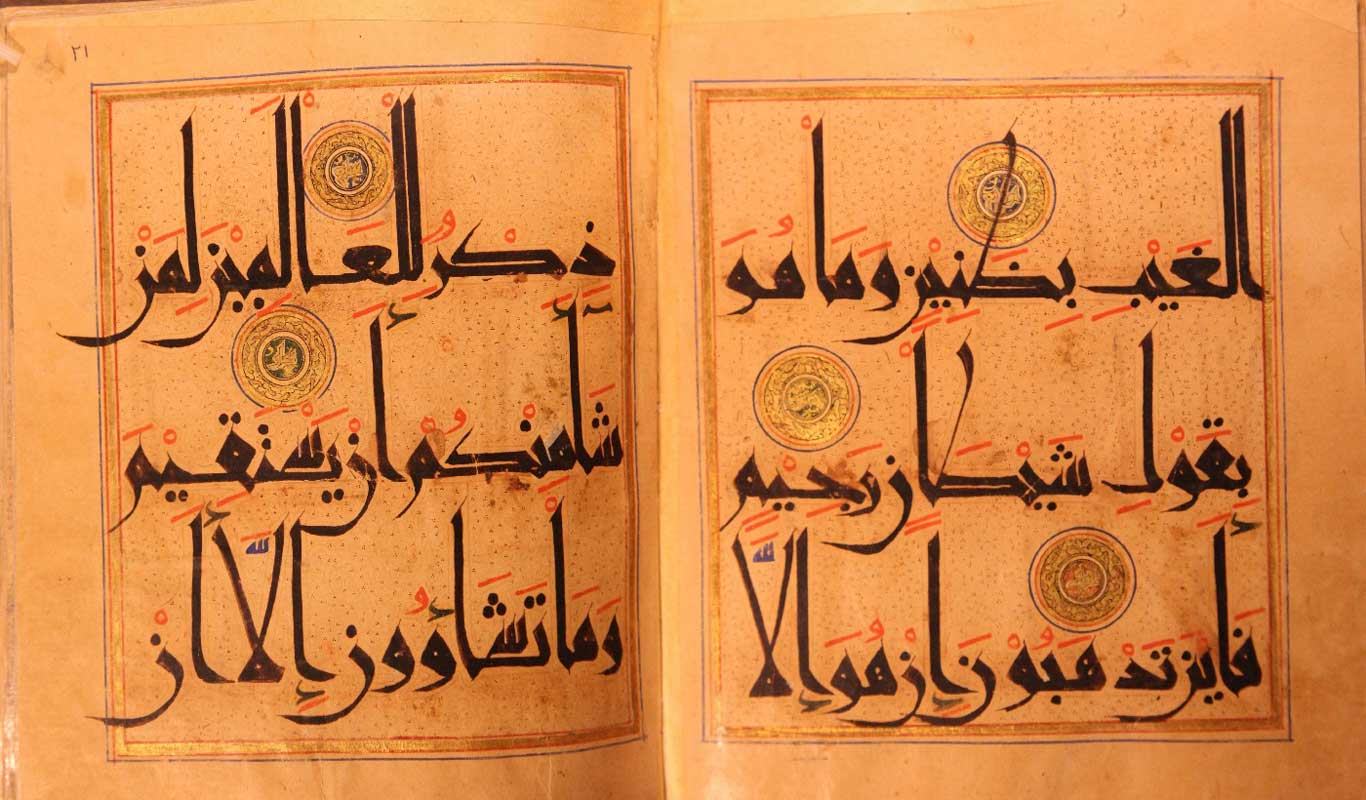 الْغَيْبِ بِضَنِينٍ وَمَا هُوَ
بِقَوْلِ شَيْطَانٍ رَجِيمٍ
فَأَيْنَ تَذْهَبُونَ إِنْ هُوَ إِلَّا
٢١
ذِكْرٌ لِلْعَالَمِينَ لِمَنْ
شَاءَ مِنْكُمْ أَنْ يَسْتَقِيمَ
وَمَا تَشَاؤُونَ إِلَّا أَنْ